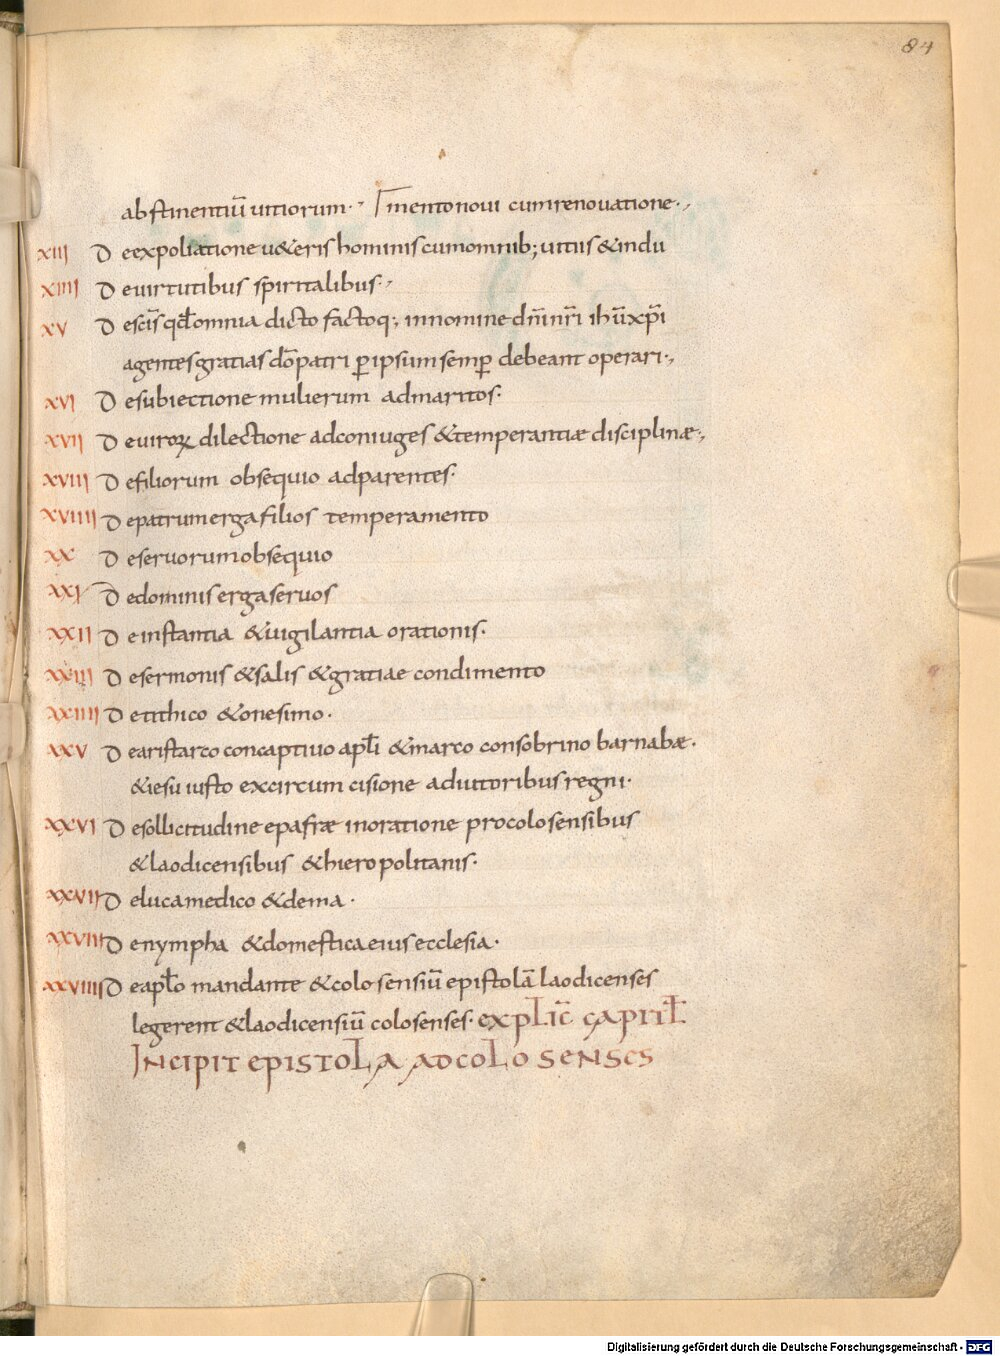 84
abstinentiū uitiorum· mento noui cum renouatione·,
XIII De expoliatione u&eris hominis cum omnib; uitiis & indu
XIIII De uirtutibus spiritalibus·,
XV De scīs qd̄ omnia dicto factoq·, in nomine dn̄i nr̄i ihū xp̄i
agentes gratias dō patri ꝑ ipsum semꝑ debeant operari·,
XVI De subiectione mulierum ad maritos·
XVII De uiroꝝ dilectione ad coniuges & temperantiæ disciplinæ·,
XVIII De filiorum obsequio ad parentes·
XVIIII De patrum erga filios temperamento
XX De seruorum obsequio
XXI De dominis erga seruos
XXII De instantia & uigilantia orationis·
XXIII De sermonis & salis & gratiae condimento
XXIIII De tithico & onesimo·
XXV De aristarco concaptiuo apłi & marco consobrino barnabæ·
& iesu iusto ex circumcisione adiutoribus regni·
XXVI De sollicitudine epafræ in oratione pro colosensibus
& laodicensibus & hieropolitanis·
XXVII De luca medico & dema·
XXVIII De nympha & domestica eius ecclesia·
XXVIIII De apło mandante & colosensiū epistolā laodicenses
legerent & laodicensiū colosenses· explic̄ capitł
INCIPIT EPISTOLA AD COLOSENSES
Digitalisierung gefördert durch die Deutsche Forschungsgemeinschaft - DFG